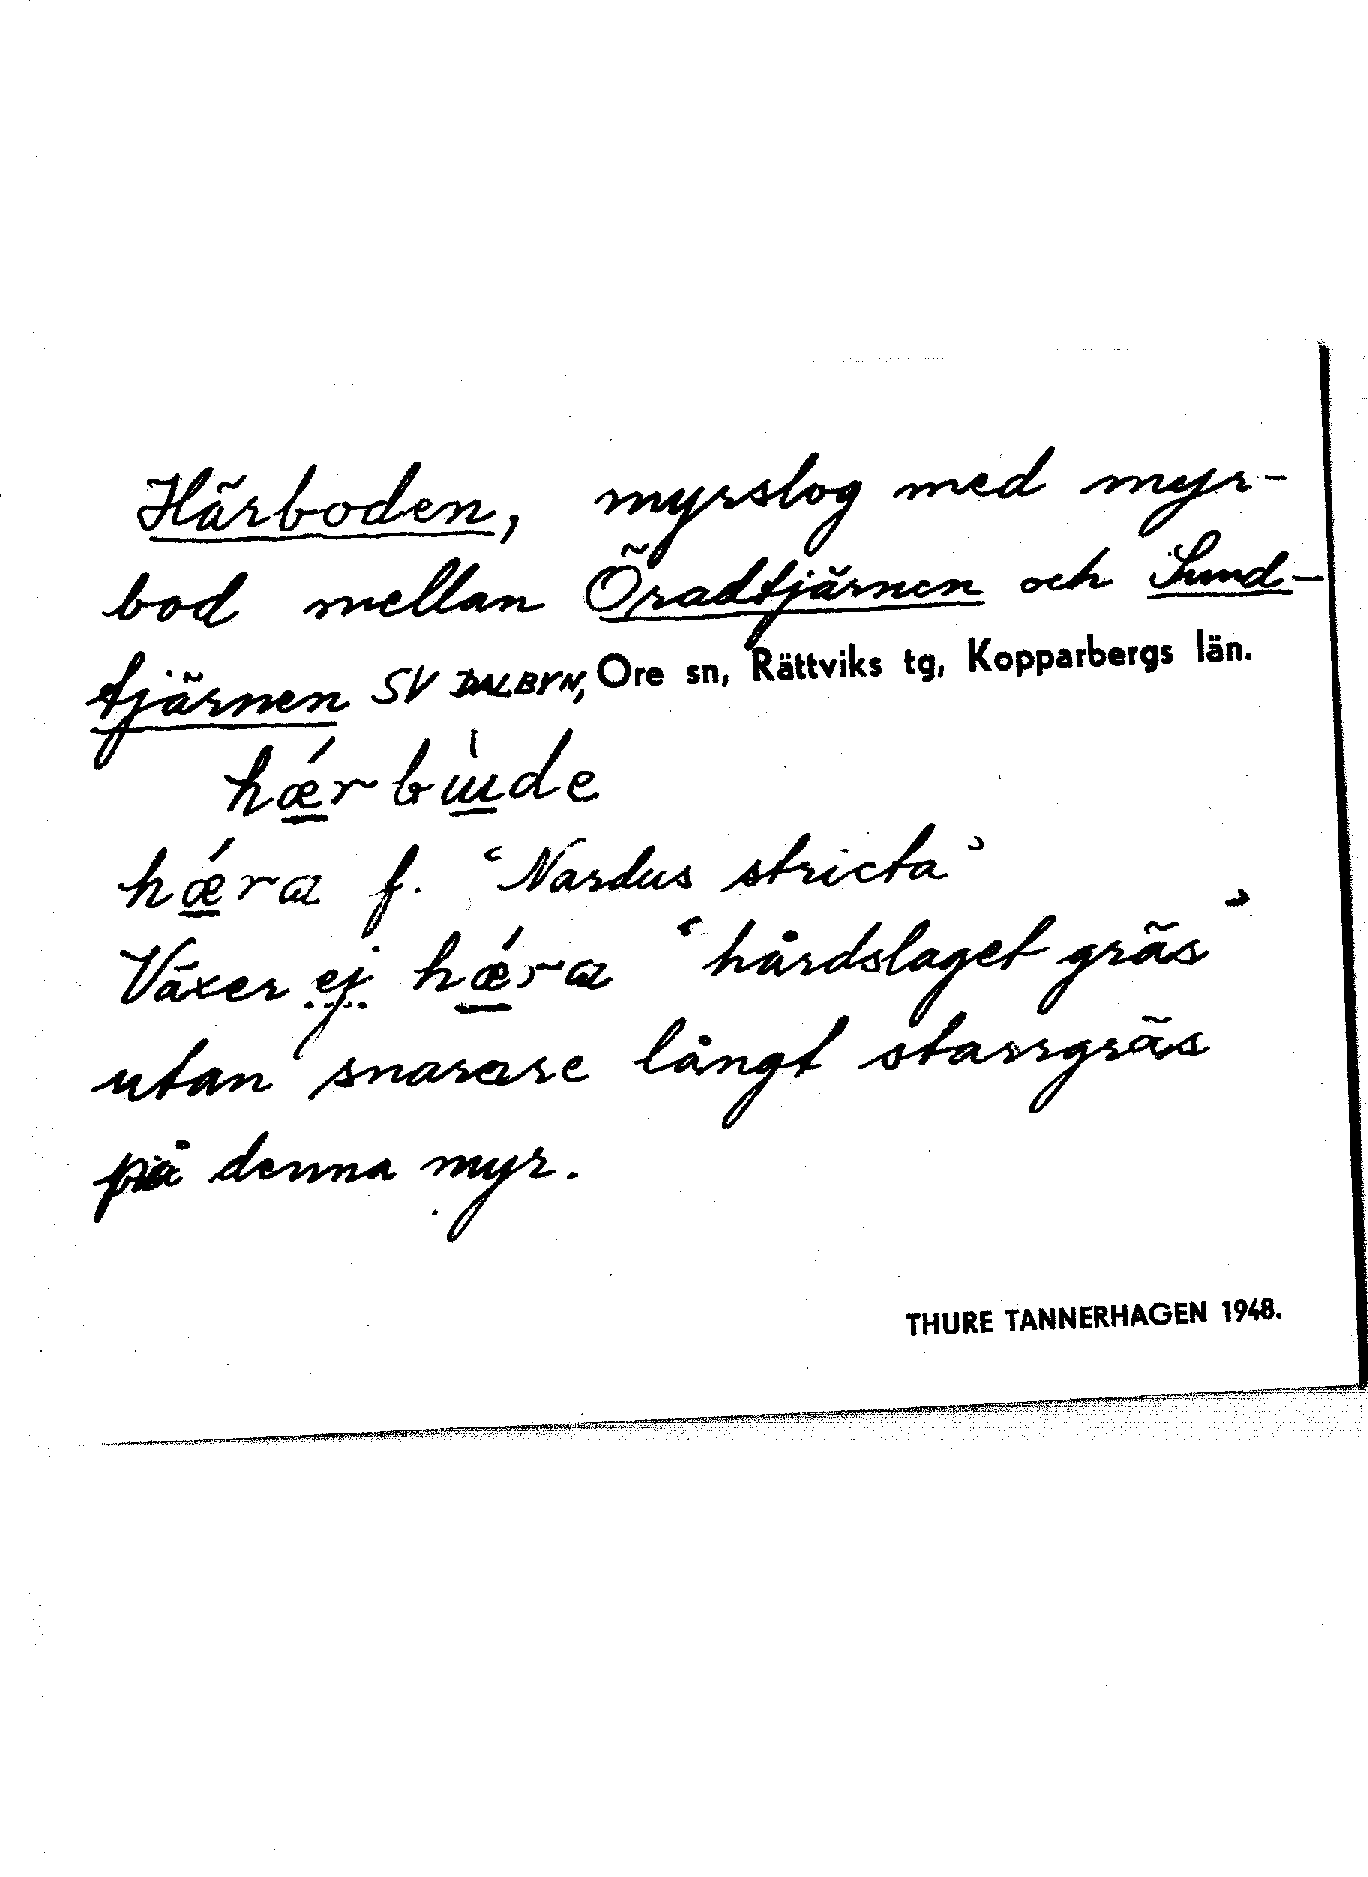 Härboden, myrslog med myr-
bod mellan Öradtjärnen och Sund-
tjärnen SV DALBYN, Ore sn, Rättviks tg, Kopparbergs län.
hǽrbɯ̀de
hǽrɑ f. "Nardus stricta"
Växer ej hǽrɑ "hårdslaget gräs"
utan snarare långt starrgräs
på denna myr.
THURE TANNERHAGEN 1948.